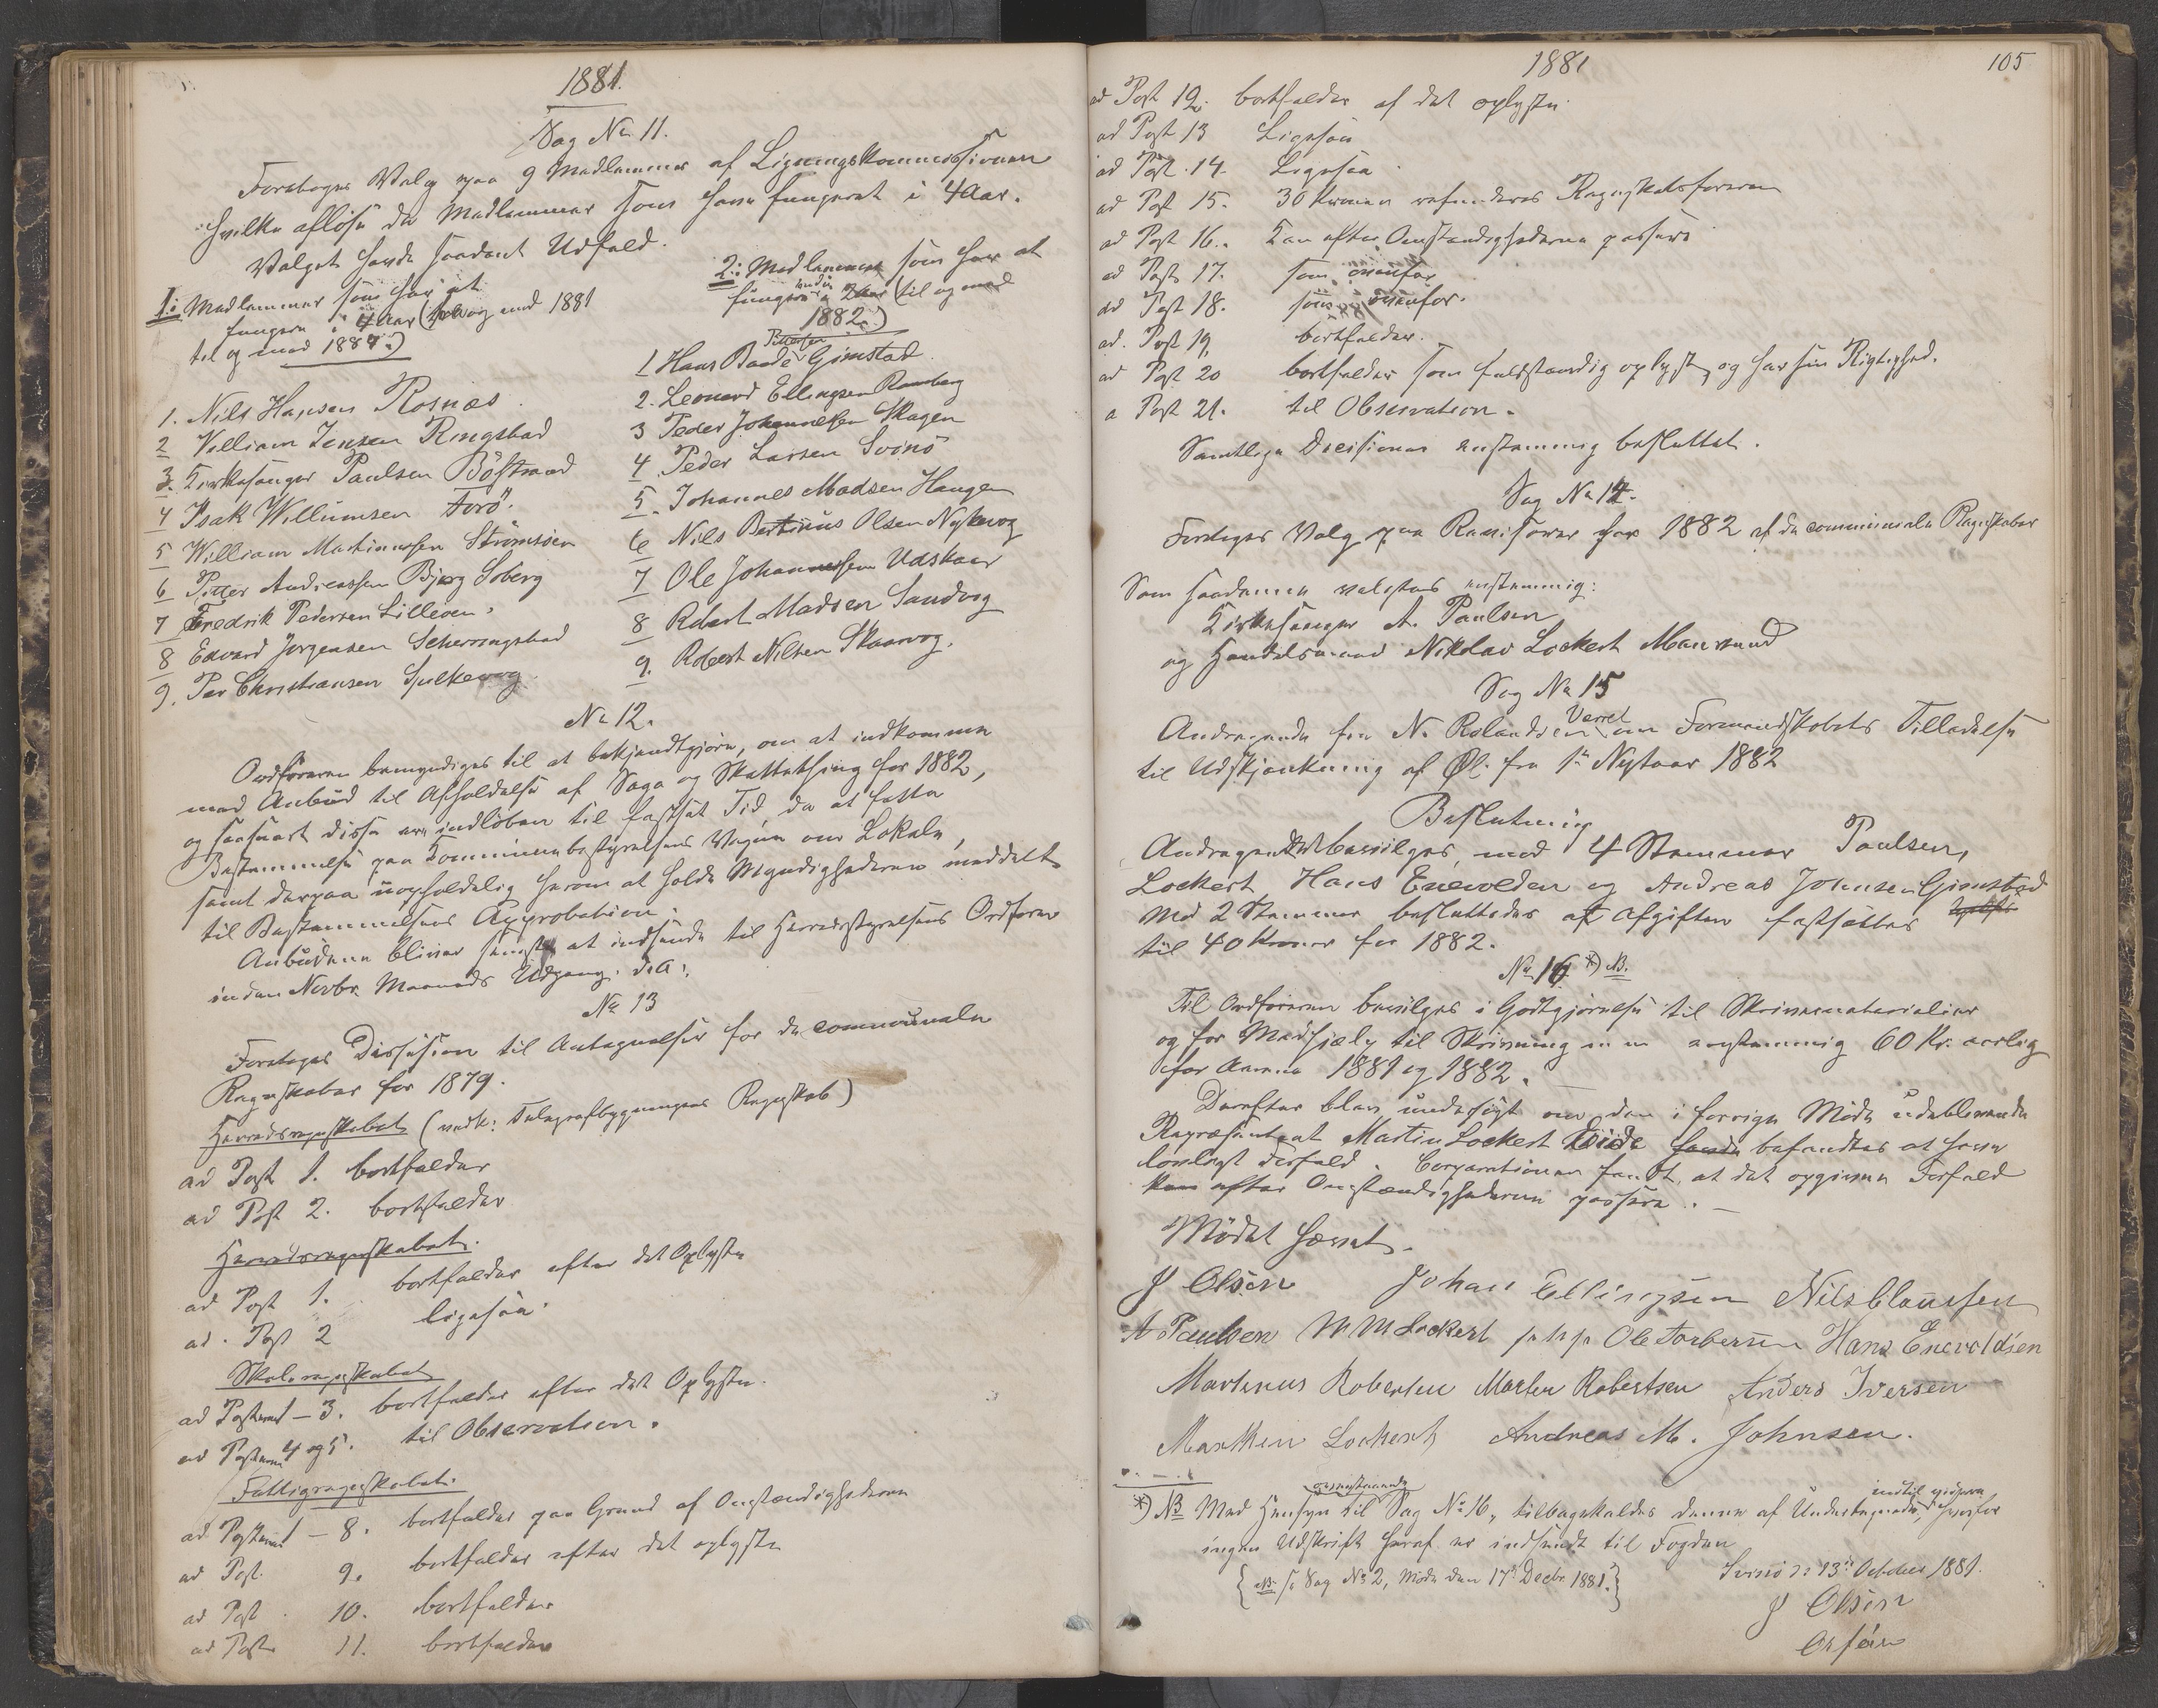 1881.
Sag No 11.
Foretoges Valg paa 9 Medlemmer af Ligningskommissionen
hvilke afløse de Medlemmer som have fungeret i 4 Aar.
Valget havde saadant Udfald.
1: Medlemmer som har at
fungere i 4 Aar (fra og med 1881
til og med 1884.)
1. Nils Hansen Rosnæs
2 Villiam Jensen Ringstad
3. Kirkesanger Paulsen Böstrand
4 Isak Willumsen Forö.
5 William Martinussen Strömöen
6 Peter Andreassen Bjerg Soberg
7 Fredrik Pedersen Lilleöen.
8 Edvard Jorgensen Scherringstad
9. Per Christiansen Spilkevog
2: Medlemmer som har at
fungere endnu i 2 Aar (til og med
1882.)
1 Hans Baade Pettersen Gimstad
2. Leonard Ellingsen Ramberg
3 Peder Johannessen Skagen
4 Peder Larsen Svinö
5. Johannes Madsen Haugen
6 Nils Bertinus Olsen Nykvog
7 Ole Johannessen Udskaar
8 Robert Madsen Sandvog
9. Robert Nilsen Skaarvog.
No 12.
Ordföreren bemyndiges til at bekjendtgjöre, om at indkomme
med Anbud til Afholdelse af Sage og Skattething for 1882,
og saasnart disse ere indlöbne til fastsat Tid da at fatte
Bestemmelse paa Kommunebestyrelsens Vegne om Lokale,
samt derpaa uopholdelig herom at holde Myndighederne meddelt
til Bestemmelsens Approbation.
Anbudene bliver senest at indsende til Herredsstyrelsens Ordförer
inden Novbr Maaneds Udgang. d.A.
No 13
Foretoges Decision til Antegnelser for de communale
Regnskaber for 1879.
Herredsregnskabet (vedk: Telegrafbygningens Regnskab)
ad Post 1. bortfalder
ad Post 2. bortfalder
Herredsregnskabet.
ad Post 1. bortfalder efter det Oplyste
ad. Post 2 ligesaa.
Skoleregnskabet
ad Posterne 1 – 3. bortfalder efter det Oplyste.
ad Posterne 4 og 5. til Observation.
Fattigregnskabet.
ad Posterne 1 – 8. bortfalder paa Grund af Omstændighederne
ad Post. 9. bortfalder efter det oplyste
ad Post 10. bortfalder
ad Post 11. bortfalder
1881
105
ad Post 12. bortfalder af det oplyste.
ad Post 13 Ligesaa
ad Post. 14. Ligesaa
ad Post 15. 30 Kroner refunderes Regnskabsföreren
ad Post 16. Kan efter Omstændighederne passere
ad Post 17. som ovenfor
ad Post 18. som ovenfor.
ad. Post 19, bortfalder.
ad Post 20 bortfalder som fuldstændig oplyst, og har sin Rigtighed.
a Post 21. til Observation.
Samtlige Decisioner enstemmig besluttet.
Sag No 14.
Foretoges Valg paa Revisorer for 1882 af de communale Regnskaber
Som saadanne valgtes enstemmig:
Kirkesanger A. Paulsen
og Handelsmand Nikolav Lockert Maursund
Sag No 15
Andragende fra N. Rolandsen Værret om Formandskabets Tilladelse
til Udskjænkning af Öl. fra 1ste Nytaar 1882
Beslutning
Andragendet bevilges med 4 Stemmer Paulsen,
Lockert, Hans Enevolden og Andreas Johnsen Gimstad
Med 2 Stemmer besluttedes at Afgiften fastsættes
til 40 Kroner for 1882.
No 16 *) NB.
Til Ordföreren bevilges i Godtgjörelse til Skrivematerialier
og for Medhjælp til Skrivning m m enstemmig 60 Kr. aarlig
for Aarene 1881 og 1882.
Derefter blev undersögt om den i forrige Möde udeblevende
Repræsentant Martin Lockert havde befandtes at have
lovligt Forfald. Corporationen fandt, at det opgivne Forfald
kan efter Omstændighederne passere.
Mödet hævet.
J Olsen Johan Ellingsen Nils Claussen
A Paulsen M M Lockert Ole Torbersen Hans Enevoldsen
Martinus Robertsen Morten Robertsen Anders Iversen
Marthin Lockert Andreas M. Johnsen.
*) NB Med Hensyn til ovennævnte Sag No 16, tilbagekaldes denne af Undertegnede, indtil videre hvorfor
ingen Udskrift heraf er indsendt til Fogden
{NB. se Sag No 2, Möde den 17de Decbr 1881.}
Svinö den 13de October 1881.
J Olsen
Ordförer